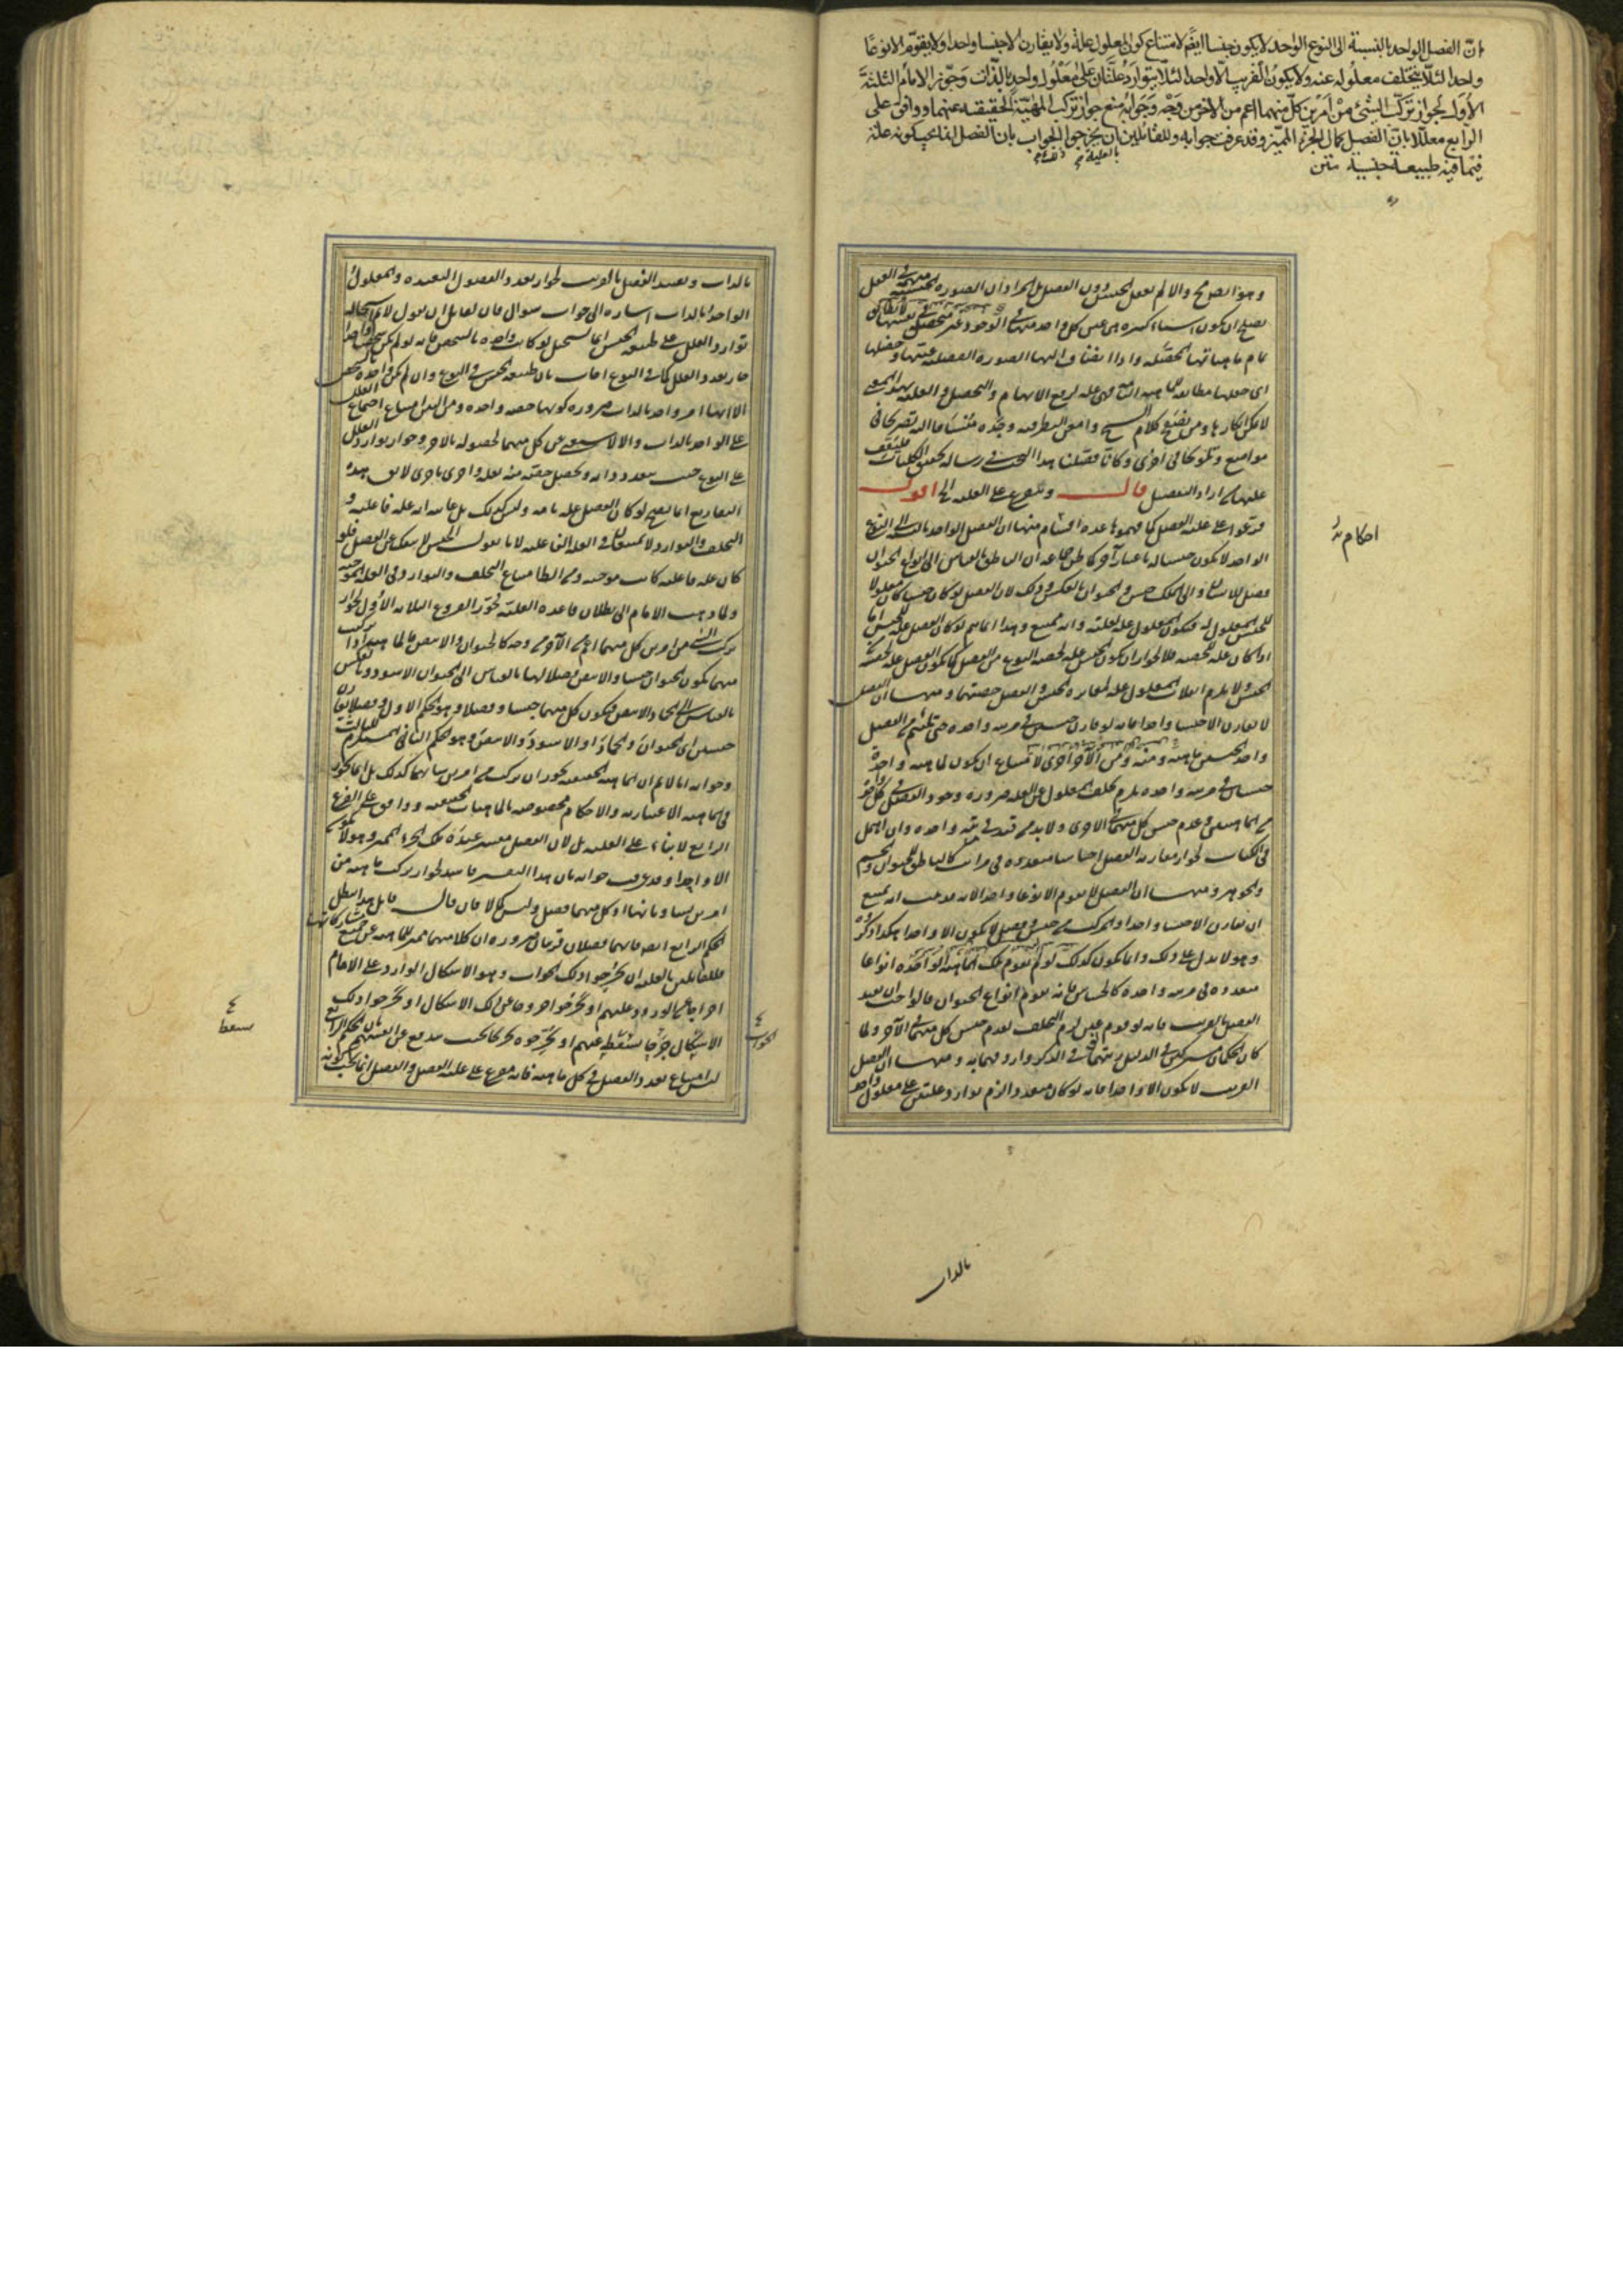 انّ الفصل الواحد بالنسبة الى النوع الواحد لا يكون جنسا ايضًا لامتناع كون المعلول علة ولا يقارن الا جنسا واحدا ولا يقوّم الا نوعًا
واحدا لئلّا يتخلف معلوله عنه ولا يكون القريب الّا واحدا لئلّا يتوارد علّتان على معلول واحد بالذات وجوّز الامام الثلثة
الاُوَل لجواز تركّب الشئ من امرين كلّ منهما اعم من الاخر من وجه وجوابه منع جواز تركب المهيّة الحقيقية عنهما ووافق على
الرابع معلّلا بانّ الفصل كمال الجزء المميّز وقد عرفت جوابه وللقائلين بالعلية ان يخرجوا الجواب بان الفصل انما يجب كونه علة
فيما فيه طبيعة جنسية متن
وهو ايضا مح والا لم نعقل الجنس دون الفصل بل المراد ان الصورة الجنسية مبهمة في العقل
يصلح ان يكون اشياء كثيرة هى عين كل واحد منها في الوجود غير متحصل في نفسها لا يطابق
تمام ماهياتها المحصّلة واذا انضاف اليها الصورة الفصلية عيّنها وحصلها
اى جعلها مطابقة للماهية التامة فهى علة لرفع الابهام والتحصيل والعلية بهذا المعنى
لا يمكن انكارها ومن تصفح كلام الشيخ وامعن النظر فيه وجده منساقا اليه تصريحا في
مواضع وتلويحا في اخرى وكانّا فصّلنا هذا البحث في رسالة تحقيق الكليات فليقف
عليها من اراد التفصيل قال ويتفرع على العلية الى اخره اقول
فرّعوا على علية الفصل كما فهموها عدة احكام منها ان الفصل الواحد بالنسبة الى النوع
الواحد لا يكون جنسا له باعتبار آخر كما ظن جماعة ان الناطق بالقياس الى انواع الحيوان
فصل للانسان والى الملك جنس والحيوان بالعكس وذلك لان الفصل لو كان جنسا كان معلولا
للجنس المعلول له فيكون المعلول علة لعلته وانه ممتنع وهذا انما يتم لو كان الفصل علة للجنس اما
اذا كان علة للحصة فلا لجواز ان يكون الجنس علة لحصة النوع من الفصل كما يكون الفصل علة لحصة
الجنس ولا يلزم انقلاب المعلول علة لمغايرة الجنس والفصل حصتهما ومنها ان الفصل
لا يقارن الا جنسا واحدا فانه لو قارن جنسين في مرتبة واحدة حتى يلتئم من الفصل
واحد الجنسين ماهية ومنه ومن الآخر اخرى لامتناع ان يكون لماهية واحدة
جنسان في مرتبة واحدة يلزم تخلف المعلول عن العلة ضرورة وجود الفصل في كل واحد
من الماهيتين وعدم جنس كل منهما في الاخرى ولا بد من قيد في مرتبة واحدة وان اهمل
في الكتاب لجواز مقارنة الفصل اجناسا متعددة في مراتب كالناطق للحيوان والجسم
والجوهر ومنها ان الفصل لا يقوم الا نوعا واحدا لانه قد ثبت انه يمتنع
ان يقارن الا جنسا واحدا والمركب من جنس وفصل لا يكون الا واحدا هكذا ذكروه
وهو لا يدل على ذلك وانما يكون كذلك لو لم يقوم تلك الماهية الواحدة انواعا
متعددة في مرتبة واحدة كالحساس فانه يقوم انواع الحيوان فالواجب ان يقيد
الفصل بالقريب فانه لو قوم نوعين لزم التخلف لعدم جنس كل منهما في الآخر ولما
كان الحكمان مشتركين في الدليل رتبهما في الذكر واردفهما به ومنها ان الفصل
القريب لا يكون الا واحدا فانه لو كان متعددا لزم توارد علتين على معلول واحد
احكام
بالذات
بالذات وتقييد الفصل بالقريب لجواز تعدد الفصول البعيدة والمعلول
الواحد بالذات اشارة الى جواب سؤال فان لقائل ان يقول لا نم استحالة
توارد العلل على طبيعة الجنس انما يستحيل لو كانت واحدة بالشخص فانه لو لم يكن شخصا واحدا
جاز تعدد العلل كما في النوع اجاب بان طبيعة الجنس في النوع وان لم يكن واحدة بالشخص
الا انها امر واحد بالذات ضرورة كونها حصة واحدة ومن البين امتناع اجتماع العلل
على الواحد بالذات والا لاستغنى عن كل منهما لحصوله بالآخر وجواز توارد العلل
على النوع حيث يتعدد ذاته ويحصل حصة منه بعلة واخرى باخرى لا يق هذه
التفاريع انما تصح لو كان الفصل علة تامة وليس كذلك بل غايته انه علة فاعلية و
التخلف والتوارد لا يمتنعان في العلة الفاعلية لانا نقول الجنس لا ينفك عن الفصل فلو
كان علة فاعلية كانت موجبة ومن البين امتناع التخلف والتوارد في العلة الموجبة
ولما ذهب الامام الى بطلان قاعدة العلية جوّز الفروع الثلاثة الاُوَل لجواز
تركب الشئ من امرين كل منهما اعم من الآخر من وجه كالحيوان والابيض فالماهية اذا تركبت
منهما يكون الحيوان جنسا والابيض فصلا لها بالقياس الى الحيوان الاسود وبالعكس
بالقياس الى الجماد الابيض فيكون كل منهما جنسا وفصلا وهو الحكم الاول وفصلا يقارن
جنسين اى الحيوان والجماد او الاسود والابيض وهو الحكم الثاني المستلزم للثالث
وجوابه انا لا نم ان الماهية الحقيقية يجوز ان تركب من امرين شانهما كذلك بل انما يجوز
في الماهية الاعتبارية والاحكام مخصوصة بالماهيات الحقيقية ووافق على الفرع
الرابع لا بناء على العلية بل لان الفصل مفسر عنده بكمال الجزء المميز وهو لا يكون
الا واحدا وقد عرفت جوابه بان هذا التفسير فاسد لجواز تركب ماهية من
امرين يساويانها اذ كل منهما فصل وليس كمالا فان قال قائل هذا يبطل
الحكم الرابع ايضا فانهما فصلان قريبان ضرورة ان كلا منهما يميز الماهية عن جميع مشاركاتها
فللقائلين بالعلية ان يخرجوا ذلك الجواب وهو الاشكال الوارد على الامام
اخراجا عن الورود عليهم او يخرجوا جوابا عن ذلك الاشكال او يخرجوا ذلك
الاشكال خرجا يسقط عنهم او يخرجوه مخرجا بحيث يندفع عن انفسهم بان الحكم الرابع
ليس امتناع تعدد الفصل في كل ماهية فانه متفرع على علية الفصل والفصل انما يجب كونه
الجواب
يسقط